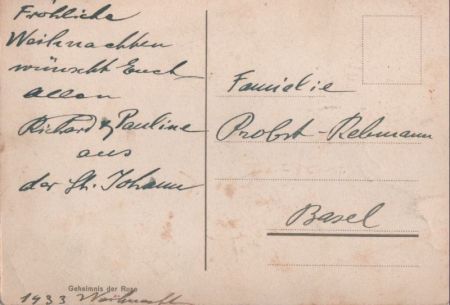 Fröhliche
Weihnachten
wünscht Euch
allen
Richard & Pauline
aus
der St. Johann
Familie
Probst-Rebmann
Basel
Geheimnis der Rose
1933 Weihnacht